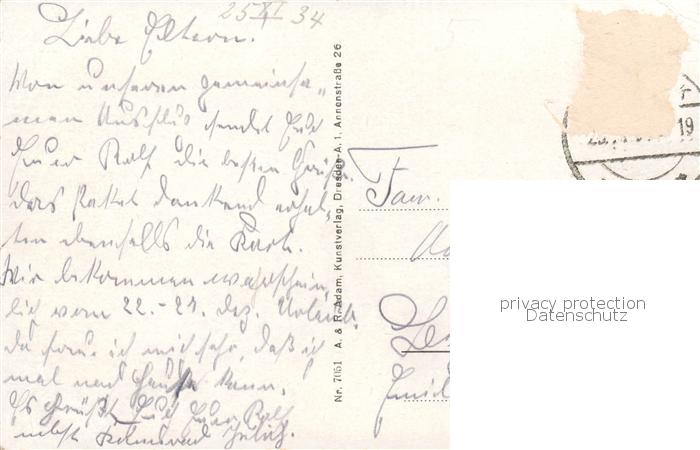 25 XI 34
Liebe Eltern.
Von unseren gemeinsa-
men Ausflug sendet Euch
Euer Rolf die besten Grüße.
das Paket dankend erhal-
ten ebenfalls die Karte.
Wir bekommen wahrschein-
lich vom 22.-27. Dez. Urlaub.
da freue ich mich sehr, daß ich
mal nach Hause kann.
Es grüßt Euch Euer Rolf
nebst
Nr. 7051 A. & R. Adam, Kunstverlag, Dresden-A. 1, Annenstraße 26
Fam.
19
privacy protection
Datenschutz